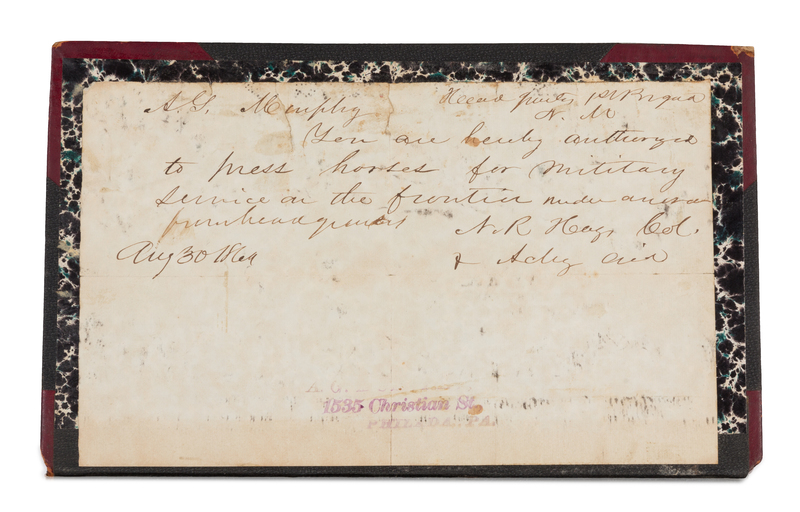 Head quarters 1st Brigad
A. G. Murphy N. M
You are hereby authorized
to press horses for military
service on the frontier under
from headquarters N. R. Hays Col.
Aug 30 1864 & Actg aid
A. G.
1535 Christian St.
PHILADA. PA.